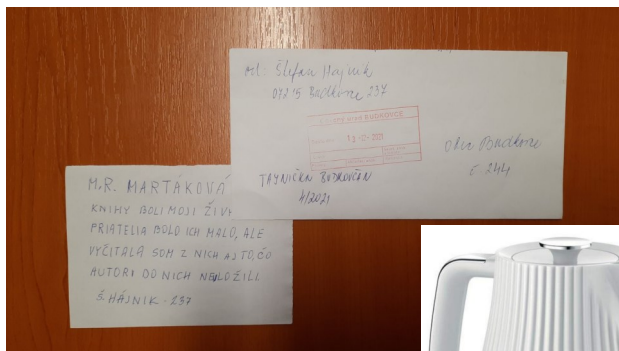 od: Štefan Hajník
072 15 Budkovce 237
OBECNÝ ÚRAD BUDKOVCE
13-12-2021
Obec Budkovce
č. 244
TAJNIČKA BUDKOVČAN
4/2021
M.R. MARTÁKOVÁ
KNIHY BOLI MOJI
PRIATELIA BOLO ICH MÁLO, ALE
VYČÍTALA SOM Z NICH AJ TO, ČO
AUTORI DO NICH NEVLOŽILI
Š. HÁJNIK - 237